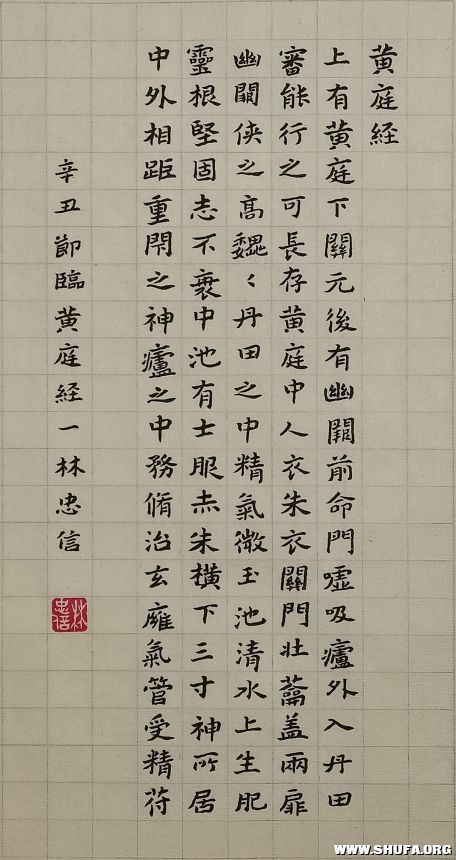 黄庭経
上有黄庭下關元後有幽闕前命門嘘吸廬外入丹田
審能行之可長存黄庭中人衣朱衣關門壮蘥盖兩扉
幽闕侠之高魏〻丹田之中精氣微玉池清水上生肥
靈根堅固志不衰中池有士服赤朱横下三寸神所居
中外相距重閇之神廬之中務脩治玄廱氣管受精苻
辛丑節臨黄庭経一林忠信
林忠信
WWW.SHUFA.ORG